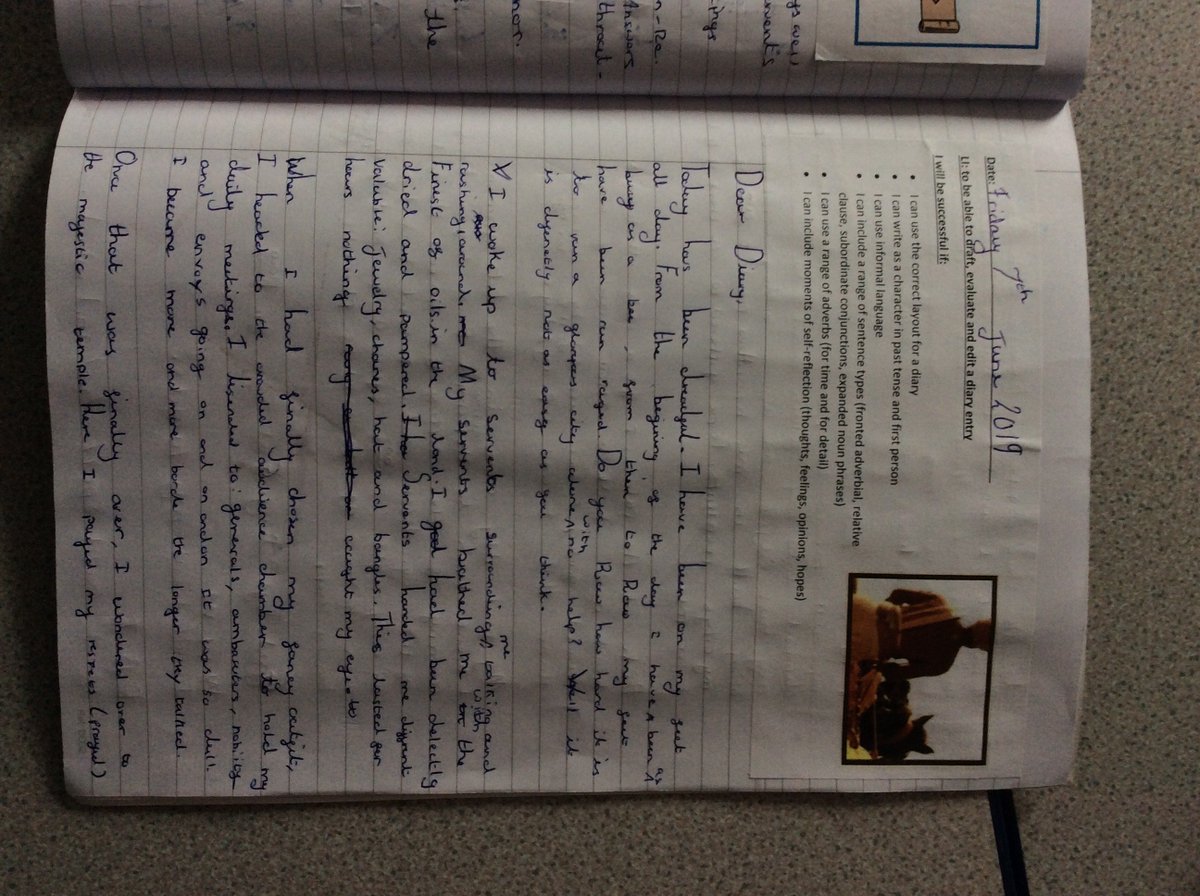 ys were
vent's
ings
n-Re.
Answers
throut-
the
nor.
Date: Friday 7th June 2019
LI: to be able to draft, evaluate and edit a diary entry
I will be successful if:
• I can use the correct layout for a diary
• I can write as a character in past tense and first person
• I can use informal language
• I can include a range of sentence types (fronted adverbial, relative
clause, subordinate conjunctions, expanded noun phrases)
• I can use a range of adverbs (for time and for detail)
• I can include moments of self-reflection (thoughts, feelings, opinions, hopes)
Dear Diary,
Today has been dreafull. I have been on my feet
all day. From the begining of the day I have been as
busy as a bee, from then to now my feet
have been run raged. Do you know how hard it is
to run a gorgeous city with no help? Well it
is defenetly not as easy as you think.
I woke up to servents surounding me, talking and
rushing around. My servents bathed me with the
Finest of oils in the land. I had been delectly
dried and pampered. Servents handed me diffrent
valuble: jewelry, chanes, hat and bangles. This lasted for
hours nothing caught my eye.
When I had finally chosen my fancy outfit,
I headed to the crowded addience chamber to hold my
daily meetings. I lisened to: generals, ambasters, nobilty
and envoys going on and on andon it was so dull.
I became more and more borde the longer they talked.
Once that was finally over, I wondered over to
the majestic temple. Here I payed my respes (prayed)